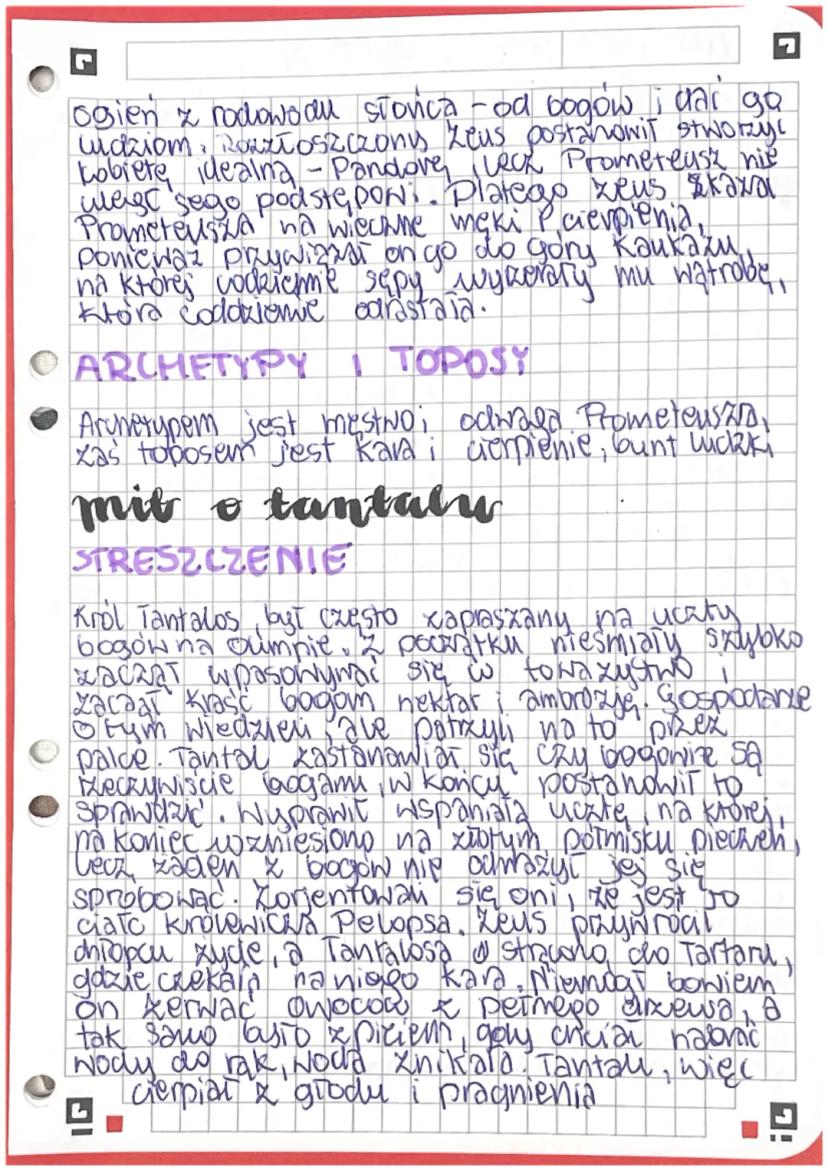 ogień z rodowodu słońca - od bogów i dać go
ludziom. Rozzłoszczony Zeus postanowił stworzyć
kobietę idealną - Pandorę, lecz Prometeusz nie
uległ jego podstępowi. Dlatego Zeus skazał
Prometeusza na wieczne męki i cierpienia,
ponieważ przywiązał on go do góry Kaukazu,
na której codziennie sępy wyżerały mu wątrobę,
która codziennie odrastała.
ARCHETYPY I TOPOSY
Archetypem jest męstwo i odwaga Prometeusza,
zaś toposem jest kara i cierpienie, bunt ludzki
mit o tantalu
STRESZCZENIE
Król Tantalos był często zapraszany na uczty
bogów na Olimpie. Z początku nieśmiały szybko
zaczął wpasowywać się w towazystwo i
zaczął kraść bogom nektar i ambrozję. Gospodarze
o tym wiedzieli, ale patrzyli na to przez
palce. Tantal zastanawiał się czy bogowie są
rzeczywiście bogami, w końcu postanowił to
sprawdzić. Wyprawił wspaniałą ucztę, na której,
na koniec wzniesiono na złotym półmisku pieczeń,
lecz żaden z bogów nie odważył jej się
spróbować. Zorientowali się oni, że jest to
ciało królewicza Pelopsa. Zeus przywrócił
chłopcu życie, a Tantalosa strącono do Tartaru,
gdzie czekała na niego kara. Niemógł bowiem
on zerwać owoców z pełnego drzewa, a
tak samo było z piciem, gdy chciał nabrać
wody do rąk, woda znikała. Tantal, więc
cierpiał z głodu i pragnienia